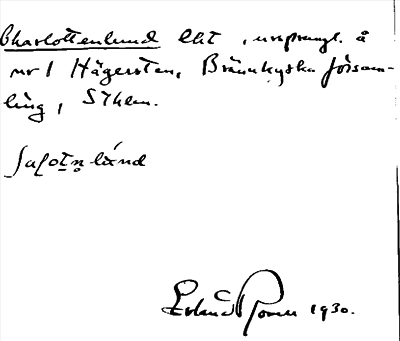 Charlottenlund lht, urspungl. å
nr 1 Hägersten, Brännkyrka försam-
ling, Sthlm.
ʃaḷotn̥lúnd
Erland Rosell 1930.